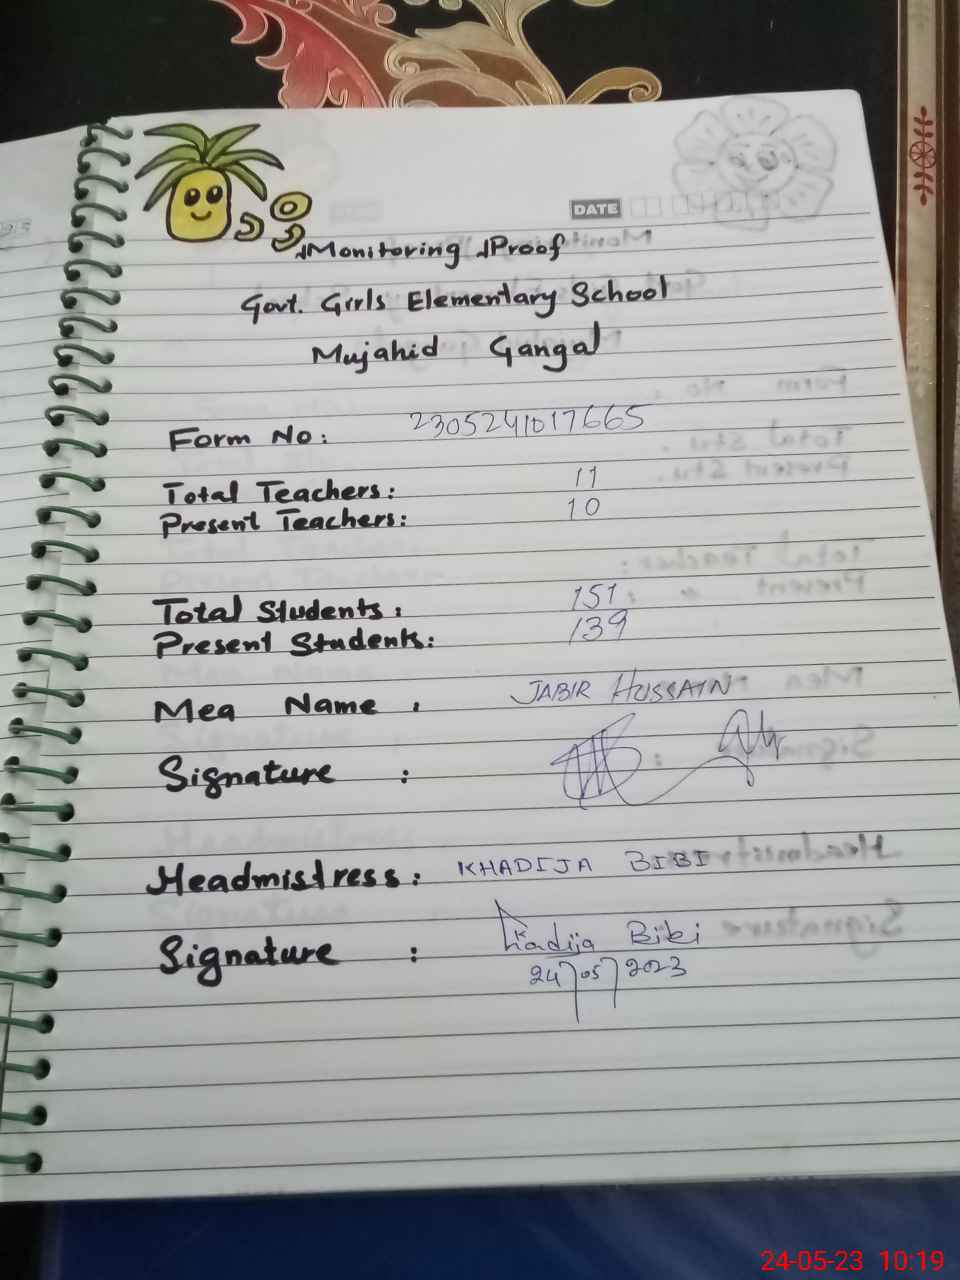 DATE
Monitoring Proof
Govt. Girls Elementary School
Mujahid Gangal
Form No: 2305241017665
Total Teachers: 11
Present Teachers: 10
Total Students: 151
Present Students: 139
Mea Name : JABIR HUSSAIN
Signature :
Headmistress: KHADIJA BIBI
Signature : Khadija Bibi
24/05/2023
24-05-23 10:19